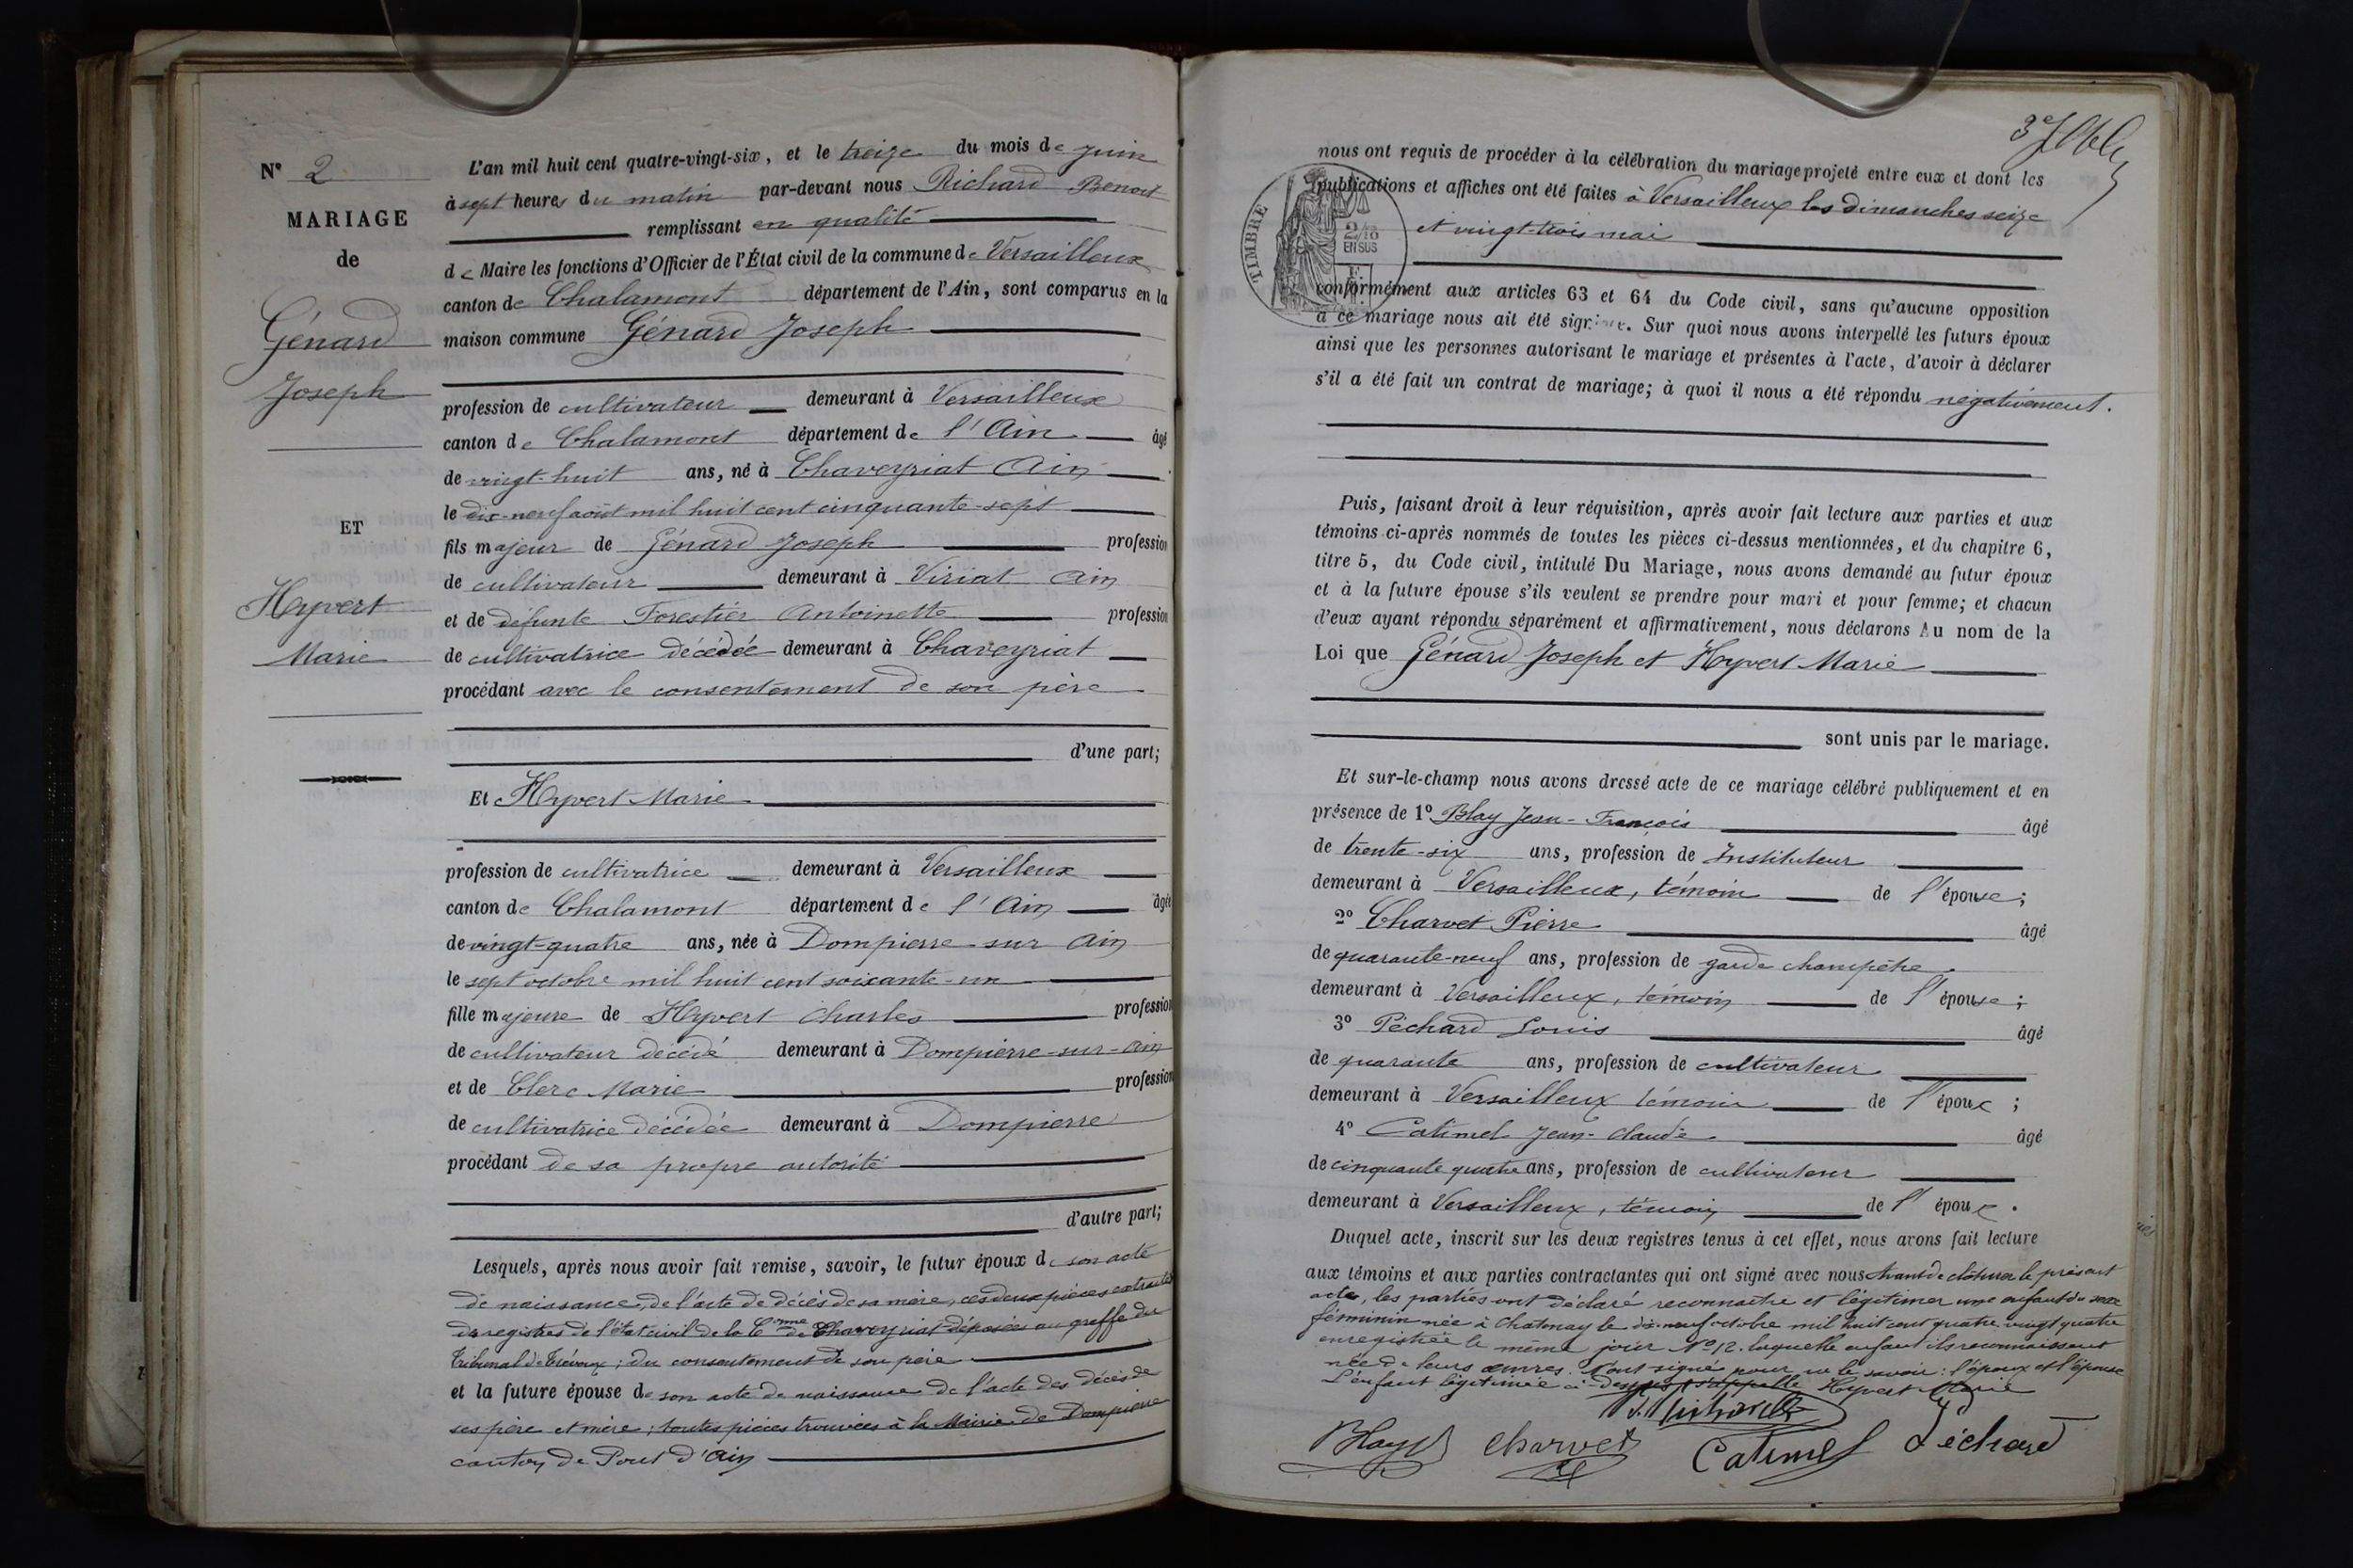 N° 2
MARIAGE
de
Génard
Joseph
ET
Hyvert
Marie
L'an mil huit cent quatre-vingt-six, et le treize du mois de juin
à sept heures du matin par-devant nous Richard Benoit
remplissant en qualité
de Maire les fonctions d'Officier de l'État civil de la commune de Versailleux
canton de Chalamont département de l'Ain, sont comparus en la
maison commune Génard Joseph
profession de cultivateur demeurant à Versailleux
canton de Chalamont département de l'Ain âgé
de vingt-huit ans, né à Chaveyriat Ain
le dix-neuf août mil huit cent cinquante-sept
fils majeur de Génard Joseph profession
de cultivateur demeurant à Viriat Ain
et de défunte Forestier Antoinette profession
de cultivatrice décédée demeurant à Chaveyriat
procédant avec le consentement de son père
d'une part;
Et Hyvert Marie
profession de cultivatrice demeurant à Versailleux
canton de Chalamont département de l'Ain âgée
de vingt-quatre ans, née à Dompierre sur Ain
le sept octobre mil huit cent soixante-un
fille majeure de Hyvert Charles profession
de cultivateur décédé demeurant à Dompierre-sur-Ain
et de Clerc Marie profession
de cultivatrice décédée demeurant à Dompierre
procédant de sa propre autorité
d'autre part;
Lesquels, après nous avoir fait remise, savoir, le futur époux de son acte
de naissance, de l'acte de décès de sa mère, ces deux pièces extraites
des registres de l'état civil de la Cnne de Chaveyriat déposées au greffe du
Tribunal de Trévoux; du consentement de son père
et la future épouse de son acte de naissance de l'acte des décès de
ses père et mère; toutes pièces trouvées à la Mairie de Dompierre
canton de Pont d'Ain
nous ont requis de procéder à la célébration du mariage projeté entre eux et dont les
publications et affiches ont été faites à Versailleux les dimanches seize
et vingt-trois mai
TIMBRE
2/10
EN SUS
conformément aux articles 63 et 64 du Code civil, sans qu'aucune opposition
à ce mariage nous ait été signifiée. Sur quoi nous avons interpellé les futurs époux
ainsi que les personnes autorisant le mariage et présentes à l'acte, d'avoir à déclarer
s'il a été fait un contrat de mariage; à quoi il nous a été répondu négativement.
Puis, faisant droit à leur réquisition, après avoir fait lecture aux parties et aux
témoins ci-après nommés de toutes les pièces ci-dessus mentionnées, et du chapitre 6,
titre 5, du Code civil, intitulé Du Mariage, nous avons demandé au futur époux
et à la future épouse s'ils veulent se prendre pour mari et pour femme; et chacun
d'eux ayant répondu séparément et affirmativement, nous déclarons Au nom de la
Loi que Génard Joseph et Hyvert Marie
sont unis par le mariage.
Et sur-le-champ nous avons dressé acte de ce mariage célébré publiquement et en
présence de 1° Blay Jean-François âgé
de trente-six ans, profession de Instituteur
demeurant à Versailleux, témoin de l'épouse;
2° Charvet Pierre âgé
de quarante-neuf ans, profession de garde champêtre
demeurant à Versailleux, témoin de l'épouse;
3° Péchard Louis âgé
de quarante ans, profession de cultivateur
demeurant à Versailleux témoin de l'époux;
4° Catimel Jean-Claude âgé
de cinquante quatre ans, profession de cultivateur
demeurant à Versailleux, témoin de l'époux.
Duquel acte, inscrit sur les deux registres tenus à cet effet, nous avons fait lecture
aux témoins et aux parties contractantes qui ont signé avec nous Avant de clôturer le présent
acte, les parties ont déclaré reconnaître et légitimer une enfant du sexe
féminin née à Chatenay le dix-neuf octobre mil huit cent quatre vingt quatre
enregistrée le même jour N° 12. laquelle enfant ils reconnaissent
née de leurs œuvres. N'ont signé pour ne le savoir: l'époux et l'épouse
L'enfant légitimée ci-dessus s'appelle Hyvert Marie
Blay Charvet Catimel Péchard